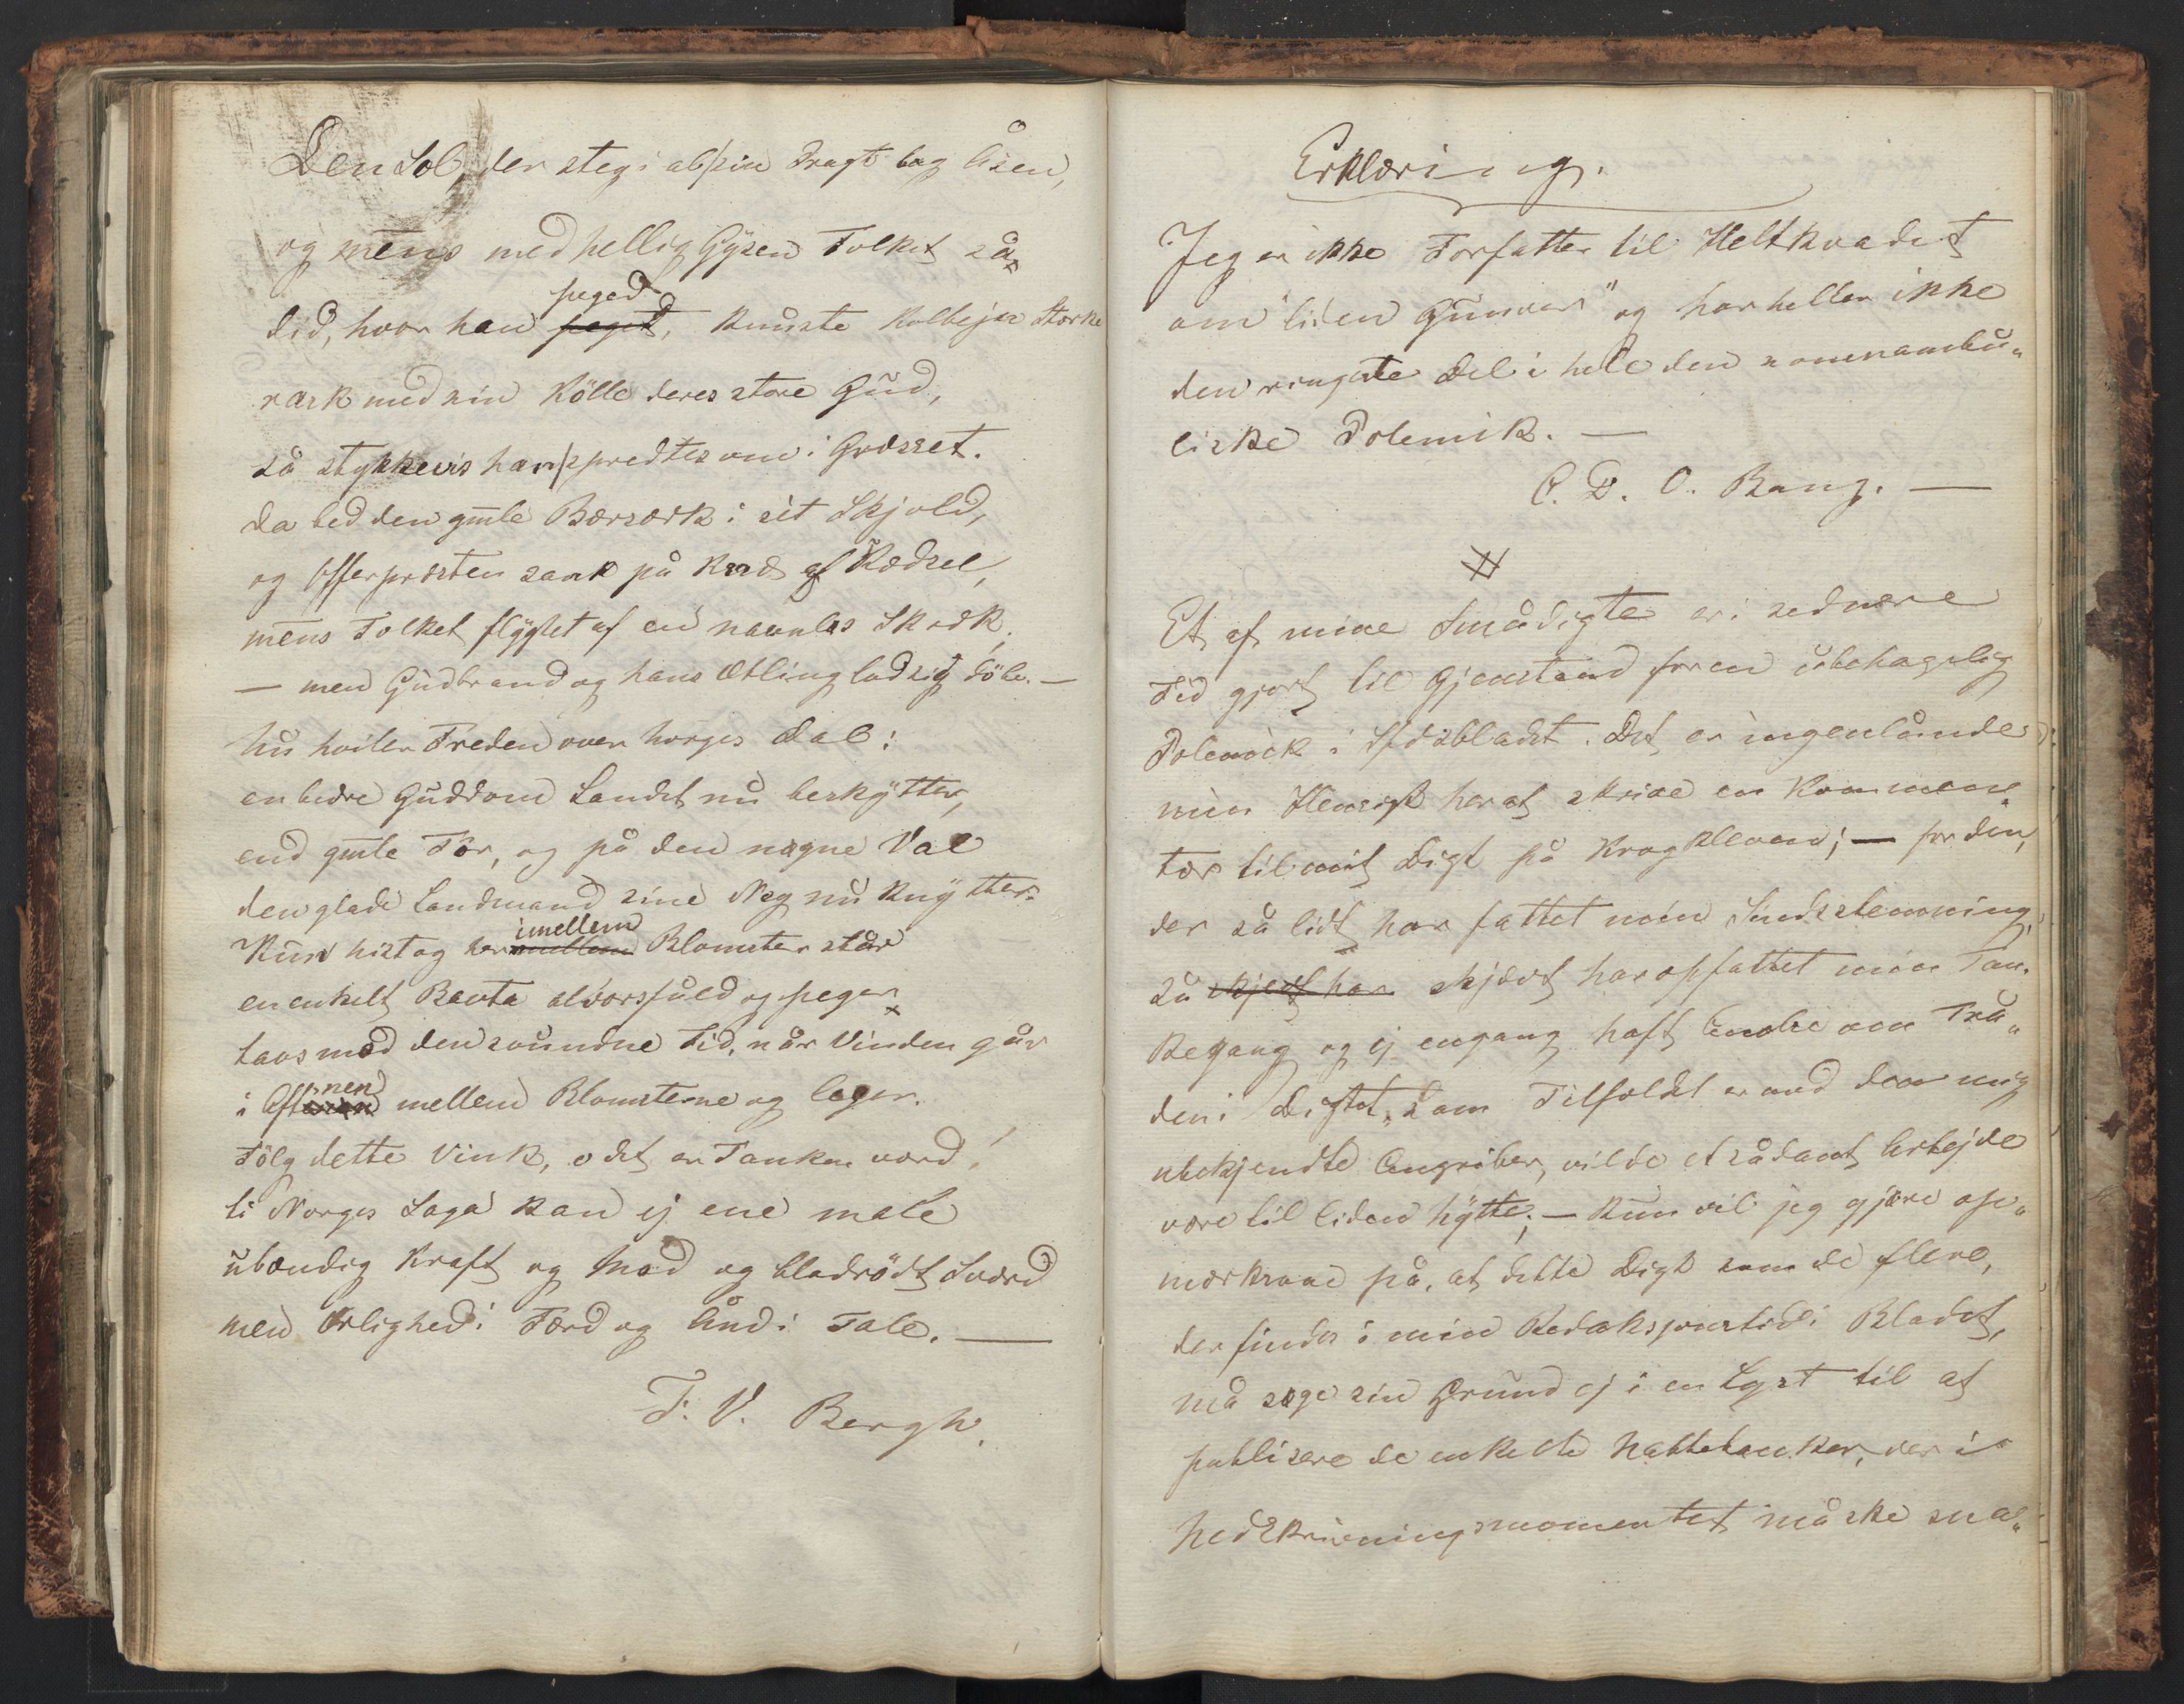 Den Sol, der steg i al sin Pragt bag Åsen,
og mens med hellig Gysen Folket så
did, hvor han peged, knuste Kolbejn Stærke
rask med sin Kölle deres store Gud,
så stykkevis han spredtes om i Græsset.
Da bed den gmle Bærsærk i sit Skjold,
og Offerpræsten sank på Knæ af Rædsel,
mens Folket flygtet af en navnløs Skræk,
— men Gudbrand og hans Ætling lod sig döbe. —
Nu hviler Freden over Norges Dal:
en bedre Guddom Landet nu beskytter,
end gmle Tor, og på den nøgne Val
den glade Landmand sine Neg nu knytter.
Kun hist og her imellem Blomster står
en enkelt Bauta alvorsfuld og peger
taus mod den svundne Tid, når Vinden går
i Aftnen mellem Blomsterne og leger.
Fölg dette Vink, o det er Tanken værd,
ti Norges Saga kan ej ene male
ubændig Kraft og Mod og blodrödt Sværd
men Ærlighed i Færd og Ånd i Tale. —
T. V. Bergh.
Erklæring.
Jeg er ikke Forfatter til Heltkvadet
om "liden Gunvor" og har heller ikke
den ringeste Del i hele den somnambu„
liske Polemik. —
C. D. O. Bang. —
#
Et af mine Smådigte er i sednere
Tid gjort til Gjenstand for en ubehagelig
Polemik i Sfdsbladet. Det er ingenlunde
min Hensigt her at skrive en Kommen„
tar til mit Digt på Krogkleven; — for den,
der så lidt har fattet min Sindsstemning,
så skjævt har skjævt har opfattet min Tan„
kegang og ej engang haft Andre om Trå„
den i Digtet, som Tilfældet er med den mig
ubekjendte Angriber, vilde et sådant Arbejde
være til liden Nytte; — kun vil jeg gjøre op„
mærksom på, at dette Digt som de flere,
der findes i min Redaksjonstid i Bladet,
må søge sin Grund ej i en Lyst til at
publisere de enkelte Nattetanker, der i
Nedskrivningsmomentet måske sna„